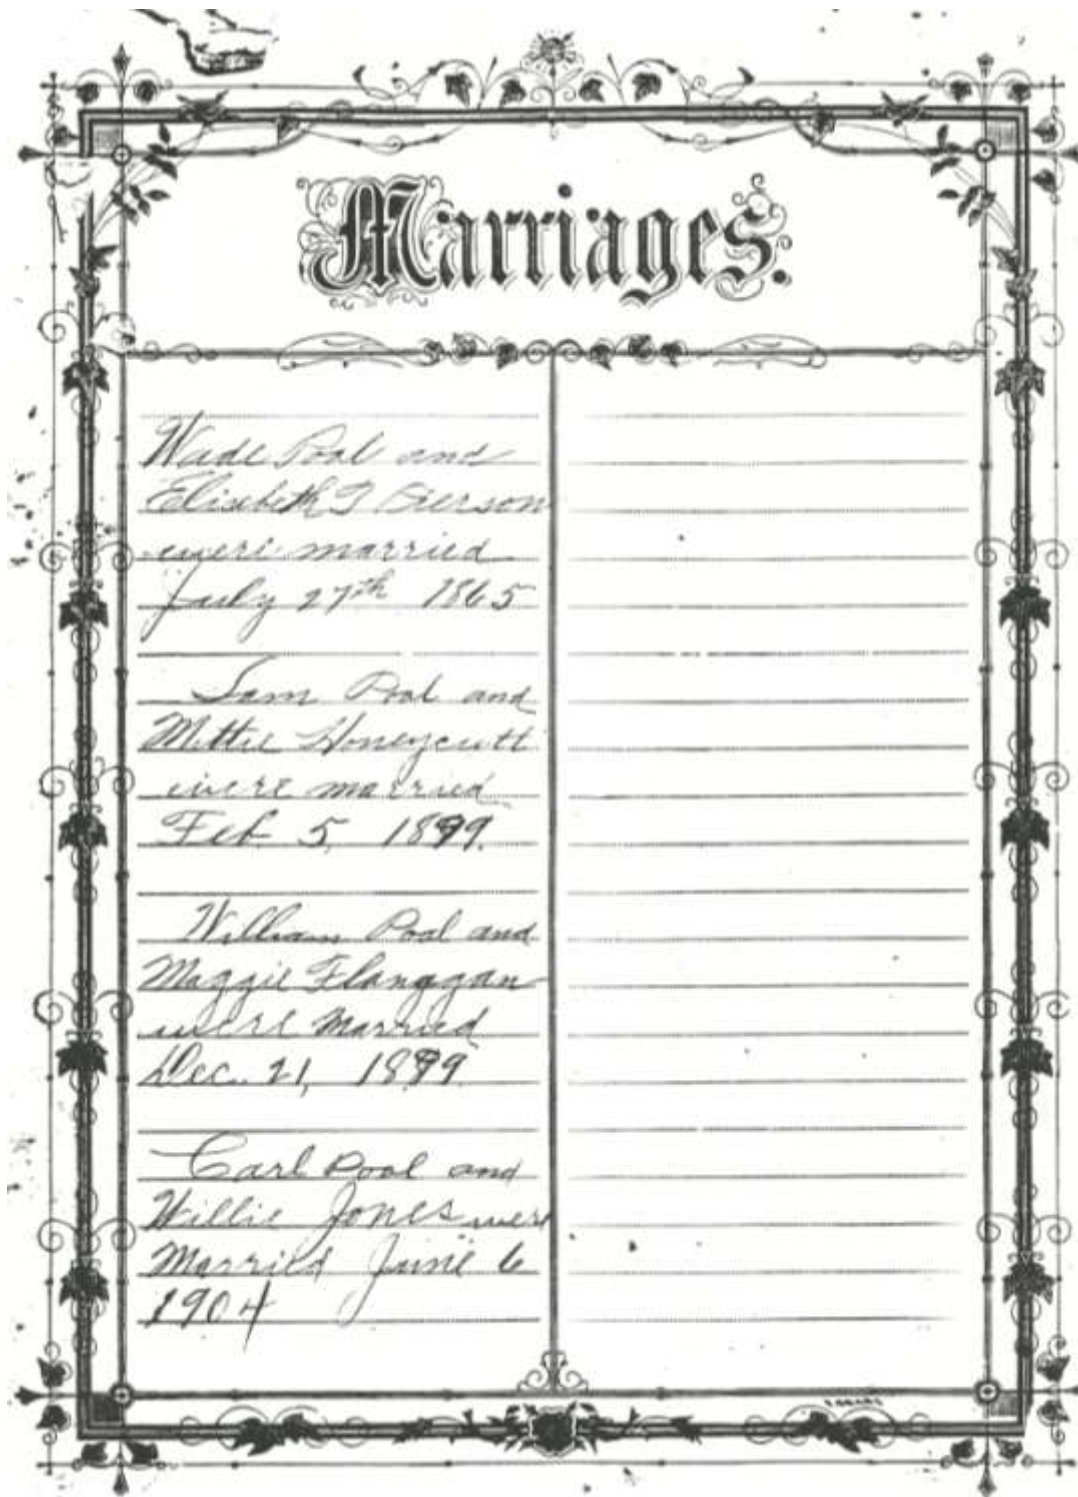 Marriages.
Wade Pool and
Elisebeth T Pierson
were married
July 27th 1865
Sam Pool and
Mittie Honeycutt
were married
Feb. 5, 1899.
William Pool and
Maggie Flanaggan
were Married
Dec. 21, 1899
Carl Pool and
Willie Jones were
Married June 6
1904